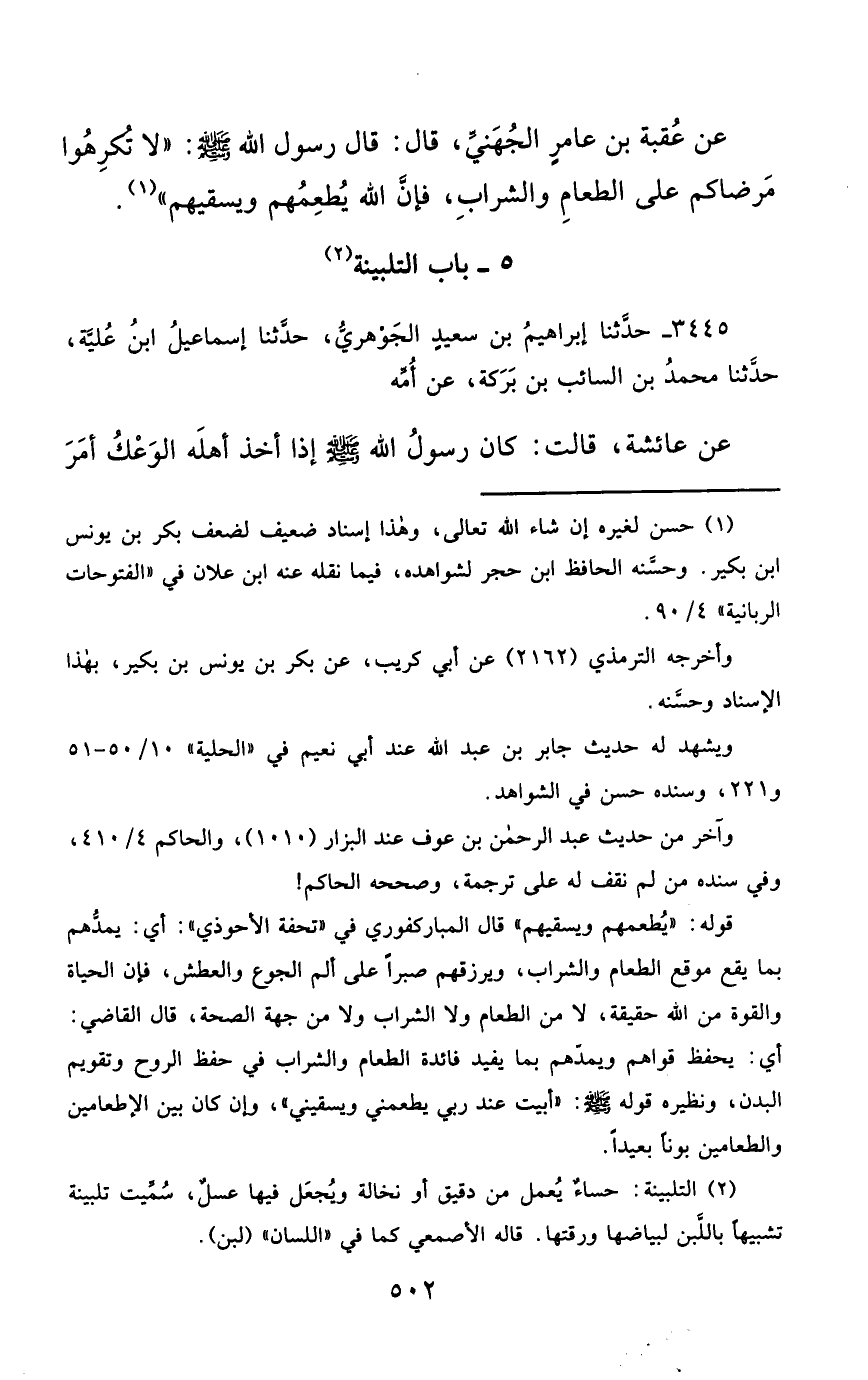 عن عُقبة بن عامرٍ الجُهَنيِّ، قال: قال رسول الله ﷺ: «لا تُكرِهُوا
مَرضاكم على الطعامِ والشرابِ، فإنَّ الله يُطعِمُهم ويسقيهم»(١).
٥ ـ باب التلبينة(٢)
٣٤٤٥ـ حدَّثنا إبراهيمُ بن سعيدٍ الجَوْهريُّ، حدَّثنا إسماعيلُ ابنُ عُليَّة،
حدَّثنا محمدُ بن السائب بن بَرَكة، عن أُمِّه
عن عائشة، قالت: كان رسولُ الله ﷺ إذا أخذ أهلَه الوَعْكُ أمَرَ
(١) حسن لغيره إن شاء الله تعالى، وهٰذا إسناد ضعيف لضعف بكر بن يونس
ابن بكير. وحسَّنه الحافظ ابن حجر لشواهده، فيما نقله عنه ابن علان في «الفتوحات
الربانية» ٤/ ٩٠.
وأخرجه الترمذي (٢١٦٢) عن أبي كريب، عن بكر بن يونس بن بكير، بهٰذا
الإسناد وحسَّنه.
ويشهد له حديث جابر بن عبد الله عند أبي نعيم في «الحلية» ١٠/ ٥٠-٥١
و٢٢١، وسنده حسن في الشواهد.
وآخر من حديث عبد الرحمٰن بن عوف عند البزار (١٠١٠)، والحاكم ٤/ ٤١٠،
وفي سنده من لم نقف له على ترجمة، وصححه الحاكم!
قوله: «يُطعمهم ويسقيهم» قال المباركفوري في «تحفة الأحوذي»: أي: يمدُّهم
بما يقع موقع الطعام والشراب، ويرزقهم صبراً على ألم الجوع والعطش، فإن الحياة
والقوة من الله حقيقة، لا من الطعام ولا الشراب ولا من جهة الصحة، قال القاضي:
أي: يحفظ قواهم ويمدّهم بما يفيد فائدة الطعام والشراب في حفظ الروح وتقويم
البدن، ونظيره قوله ﷺ: «أبيت عند ربي يطعمني ويسقيني»، وإن كان بين الإطعامين
والطعامين بوناً بعيداً.
(٢) التلبينة: حساءٌ يُعمل من دقيق أو نخالة ويُجعَل فيها عسلٌ، سُمِّيت تلبينة
تشبيهاً باللَّبن لبياضها ورقتها. قاله الأصمعي كما في «اللسان» (لبن).
٥٠٢